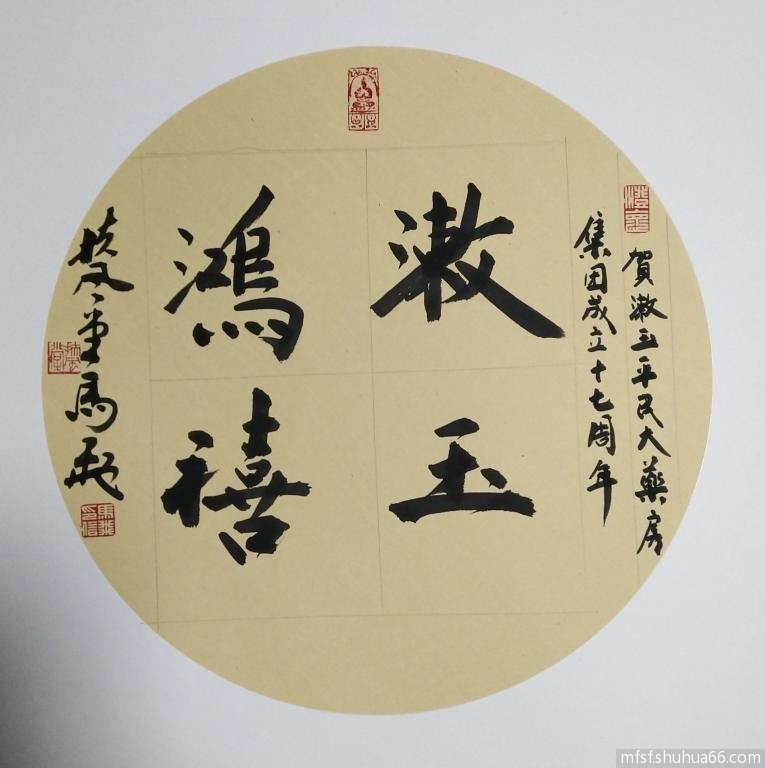 賀潄玉平民大藥房
集团成立十七周年
潄玉
鴻禧
馬
mfsf.shuhua66.com